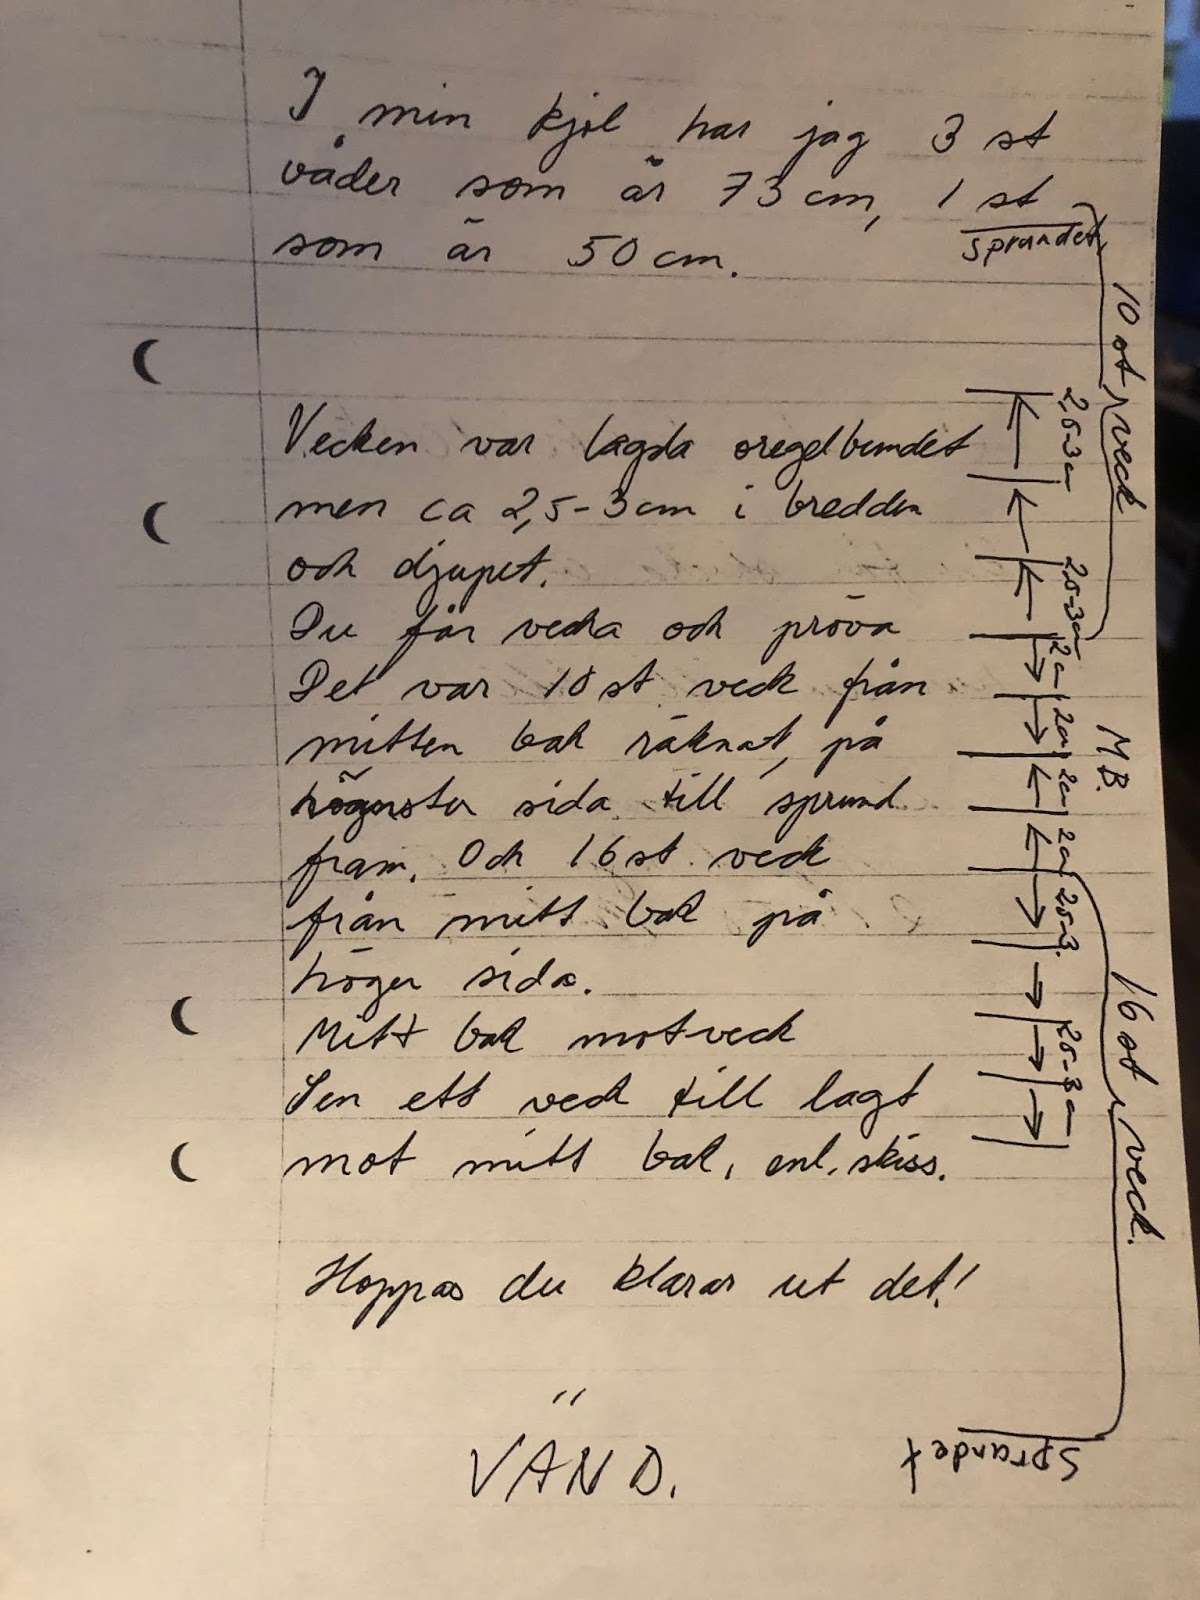 I min kjol har jag 3 st
våder som är 73 cm, 1 st
som är 50 cm.
Vecken var lagda oregelbundet
men ca 2,5-3 cm i bredden
och djupet.
Du får vecka och pröva
Det var 10 st veck från
mitten bak räknat, på
sida till sprund
fram. Och 16 st veck
från mitt bak på
höger sida.
Mitt bak motveck
Sen ett veck till lagt
mot mitt bak, enl. skiss.
Hoppas du klarar ut det!
VÄND.
Sprundet
10 st veck
2,5-3 cm
2,5-3 cm
2 cm
2 cm
M B.
2 cm
2 cm
2,5-3.
2,5-3 cm
16 st veck.
Sprundet